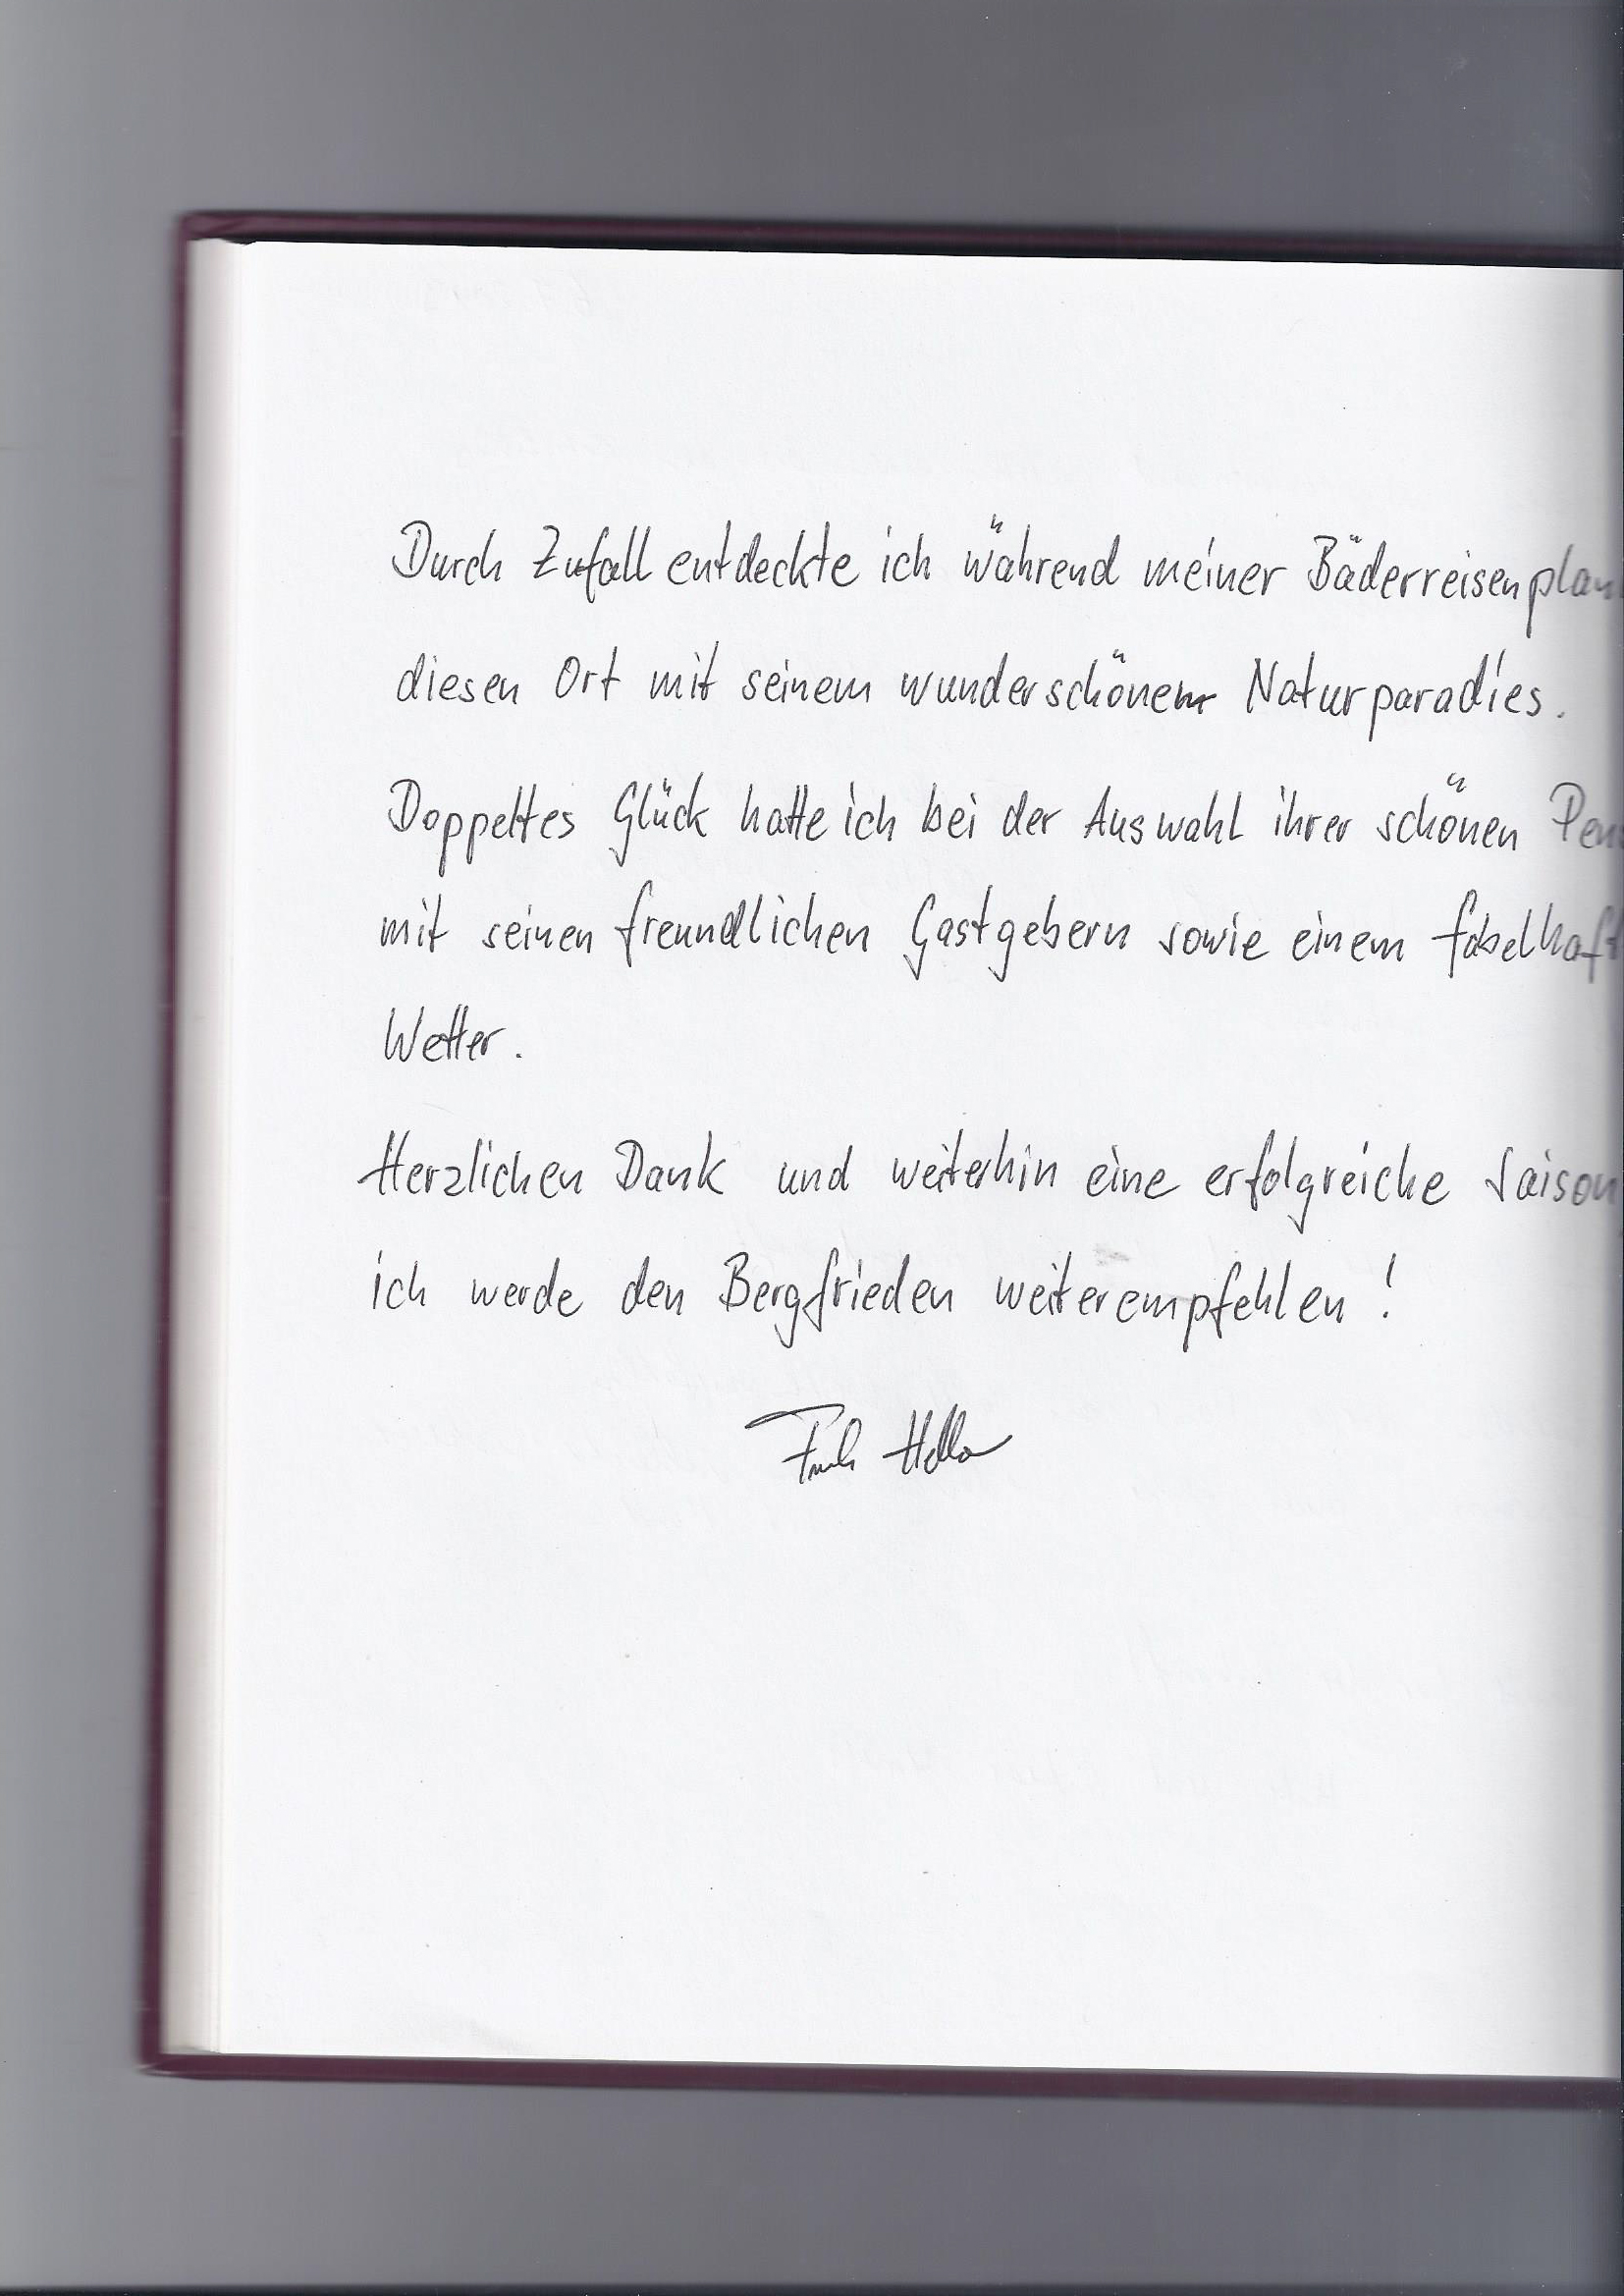 Durch Zufall entdeckte ich während meiner Bäderreisenplan
diesen Ort mit seinem wunderschönem Naturparadies.
Doppeltes Glück hatte ich bei der Auswahl ihrer schönen Pen
mit seinen freundlichen Gastgebern sowie einem fabelhaft
Wetter.
Herzlichen Dank und weiterhin eine erfolgreiche Saison
ich werde den Bergfrieden weiterempfehlen !